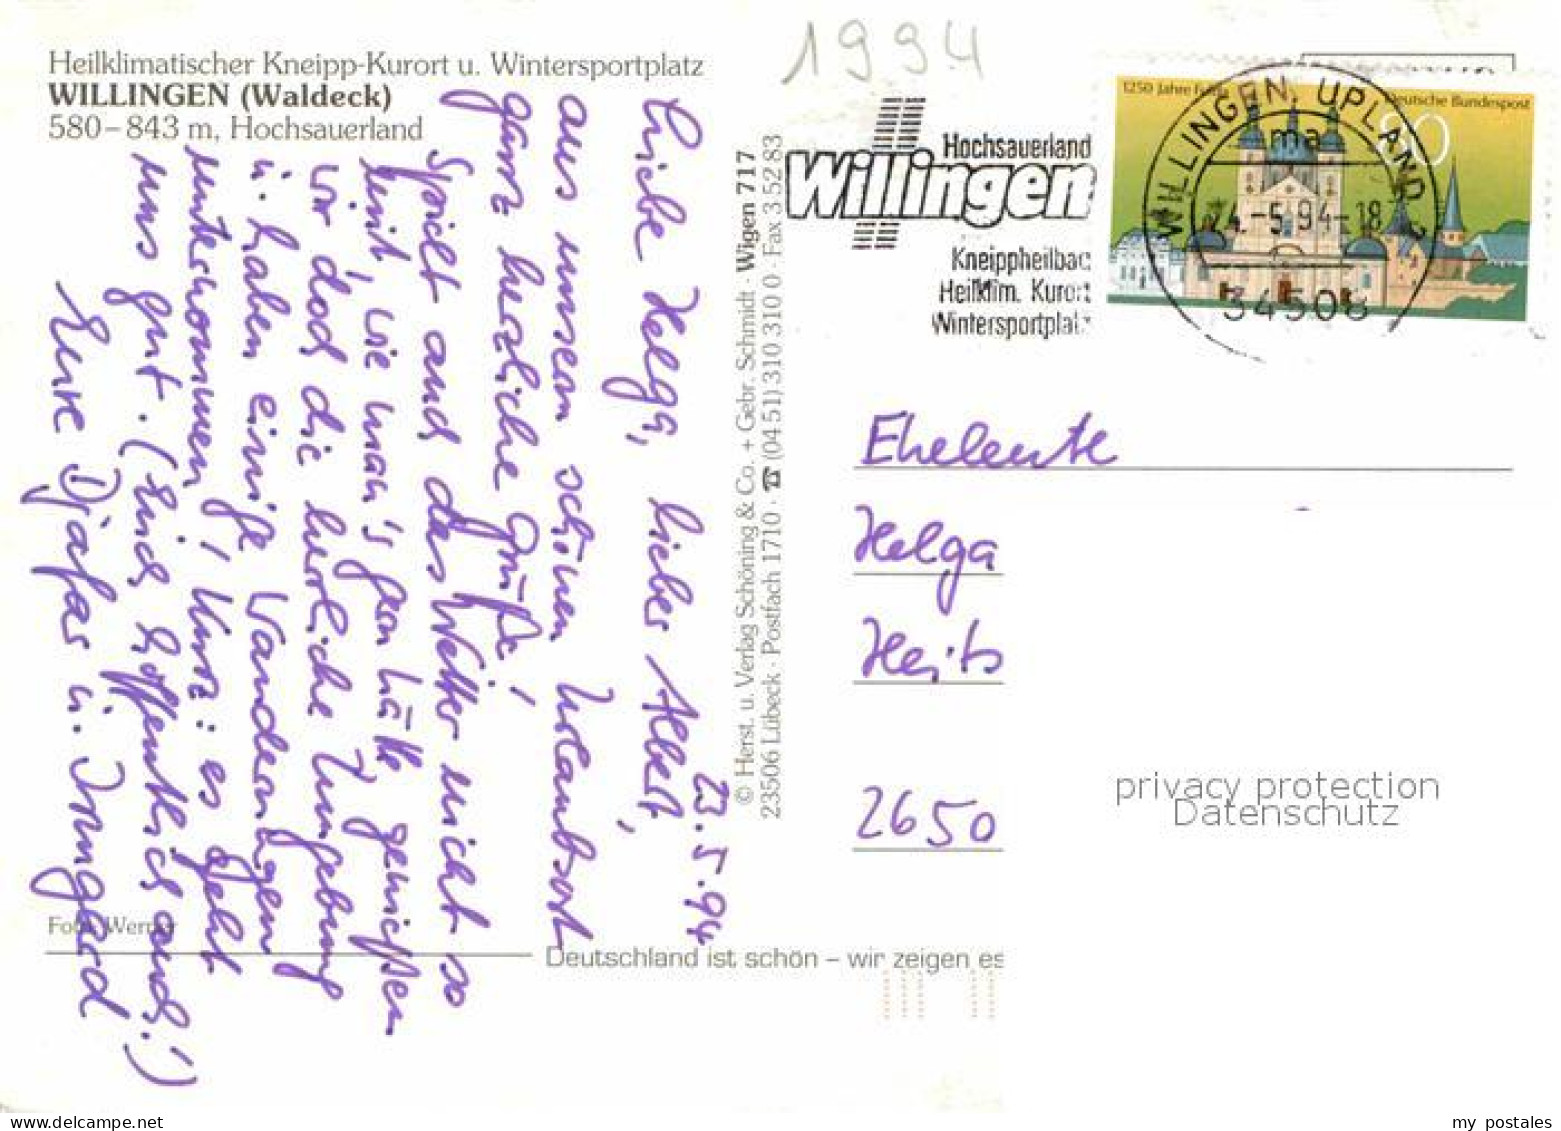 Heilklimatischer Kneipp-Kurort u. Wintersportplatz
WILLINGEN (Waldeck)
580–843 m, Hochsauerland
1994
23.5.94
Liebe Helga, lieber Albert,
aus unserm schönen Urlaubsort
ganz herzliche Grüße!
Spielt auch das Wetter nicht so
mit, wie man's gern hätte, genießen
wir doch die herrliche Umgebung
u. haben einige Wanderungen
unternommen! Kurz: es geht
uns gut. (Euch hoffentlich auch!)
Eure Djafar u. Irmgard
© Herst. u. Verlag Schöning & Co. + Gebr. Schmidt · Wigen 717
23506 Lübeck · Postfach 1710 · ☎ (04 51) 310 310 0 · Fax 3 52 83
Hochsauerland
Willingen
Kneippheilbad
Heilklim. Kurort
Wintersportplatz
1250 Jahre Fulda
Deutsche Bundespost
80
WILLINGEN, UPLAND
ma
24.-5.94-18
34508
Eheleute
Helga
2650
Foto: Werner
Deutschland ist schön – wir zeigen es
privacy protection
Datenschutz
my postales